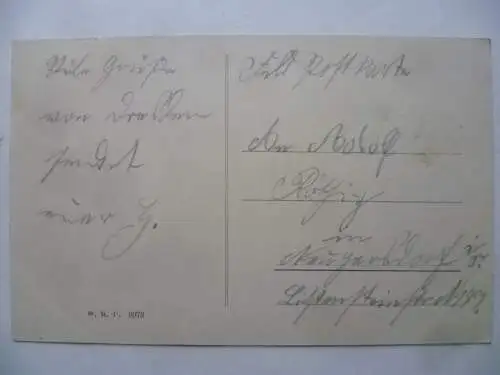 Viele Grüße
von Dresden
sendet
euer G.
Feld Postkarte
An Adolf
Röthig
in
Neugersdorf i/S.